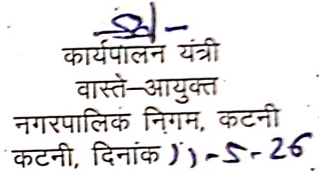 कार्यपालन यंत्री
वास्ते–आयुक्त
नगरपालिक निगम, कटनी
कटनी, दिनांक 11-5-26